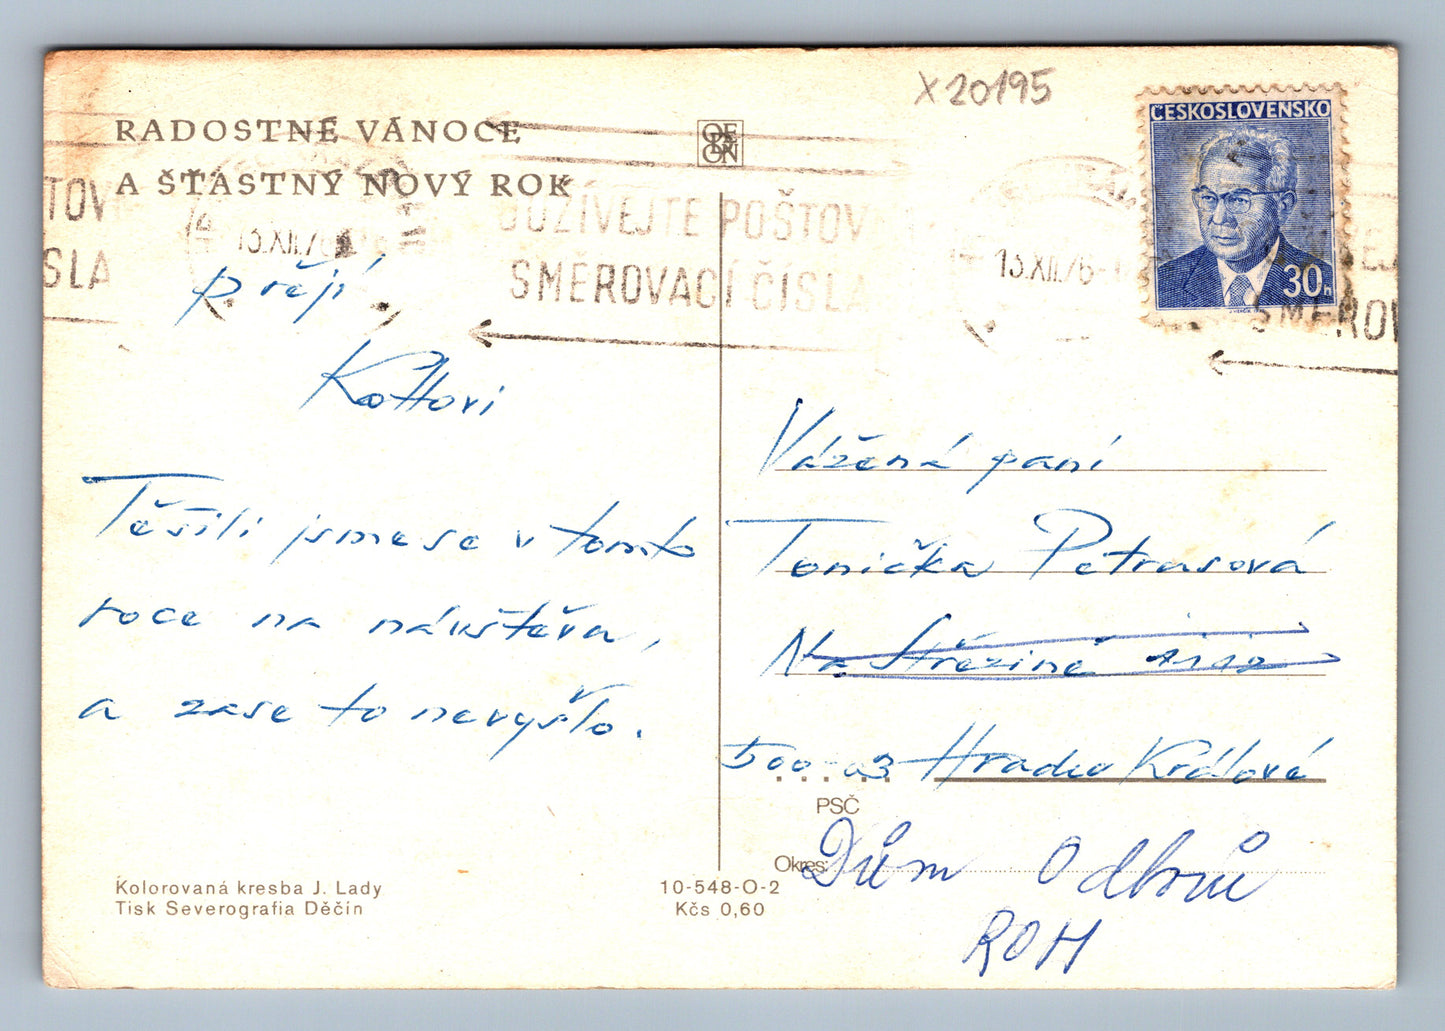 X 20195
RADOSTNÉ VÁNOCE
A ŠŤASTNÝ NOVÝ ROK
ODEON
ČESKOSLOVENSKO
30h
TOV
SLA
POUŽÍVEJTE POŠTOV
SMĚROVACÍ ČÍSLA
13.XII.76
13.XII.76
SMĚROV
přejí
Kottovi
Těšili jsme se v tomto
roce na návštěvu,
a zase to nevyšlo.
Vážená paní
Tonička Petrasová
Na Střezině 1112
500 03 Hradec Králové
PSČ
Okres:
Dům Odborů
ROH
Kolorovaná kresba J. Lady
Tisk Severografia Děčín
10-548-O-2
Kčs 0,60